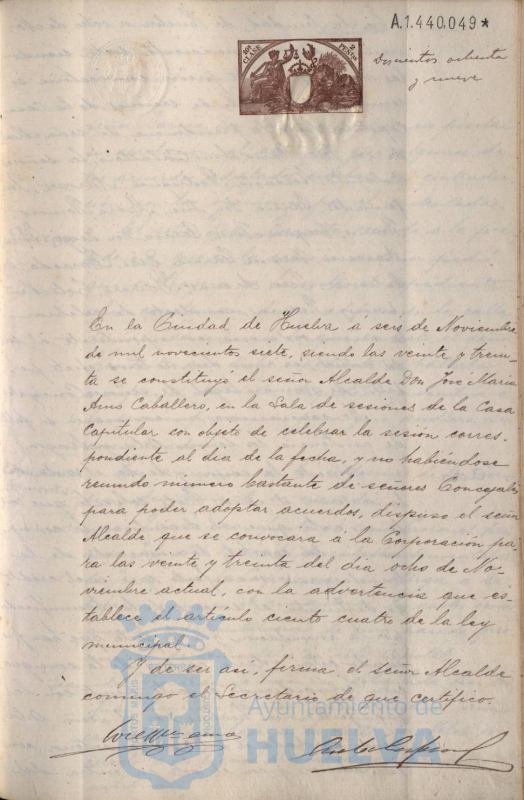 A.1.440.049*
10ª CLASE
2 PTAS
Doscientos ochenta
y nueve
En la Ciudad de Huelva á seis de Noviembre
de mil novecientos siete, siendo las veinte y trein-
ta se constituyó el señor Alcalde Don José María
Amo Caballero, en la Sala de sesiones de la Casa
Capitular con objeto de celebrar la sesión corres-
pondiente al dia de la fecha, y no habiéndose
reunido número bastante de señores Concejales
para poder adoptar acuerdos, dispuso el señor
Alcalde que se convocára á la Corporación pa-
ra las veinte y treinta del dia ocho de No-
viembre actual, con la advertencia que es-
tablece el artículo ciento cuatro de la ley
municipal.
Y de ser así, firma el señor Alcalde
conmigo el Secretario de que certifico.
José Mª Amo
Ayuntamiento de
HUELVA